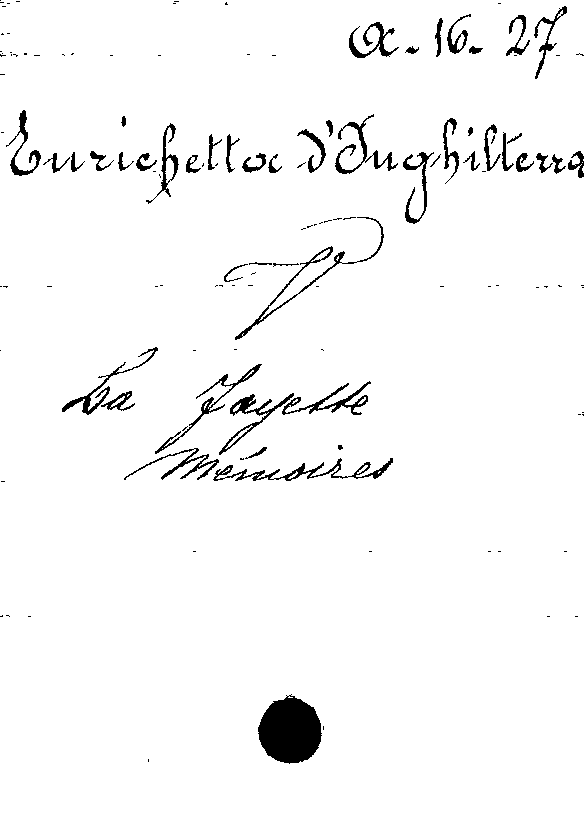 A. 16. 27
Enrichetta d'Inghilterra
V
La Fayette
Mémoires